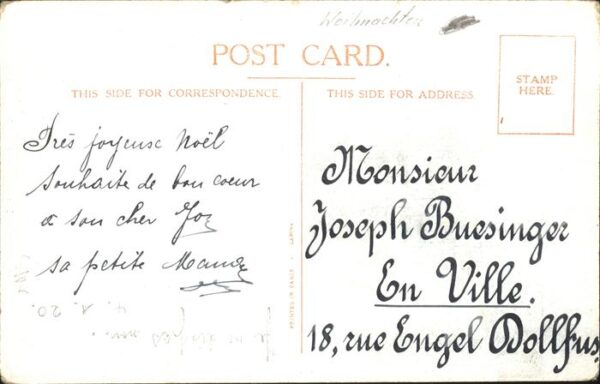 Weihnachten
POST CARD.
THIS SIDE FOR CORRESPONDENCE.
THIS SIDE FOR ADDRESS.
STAMP
HERE.
Très joyeuse Noël
souhaite de bon coeur
a son cher Joz
sa petite
Monsieur
Joseph Buesinger
En Ville.
18, rue Engel Dollfus,